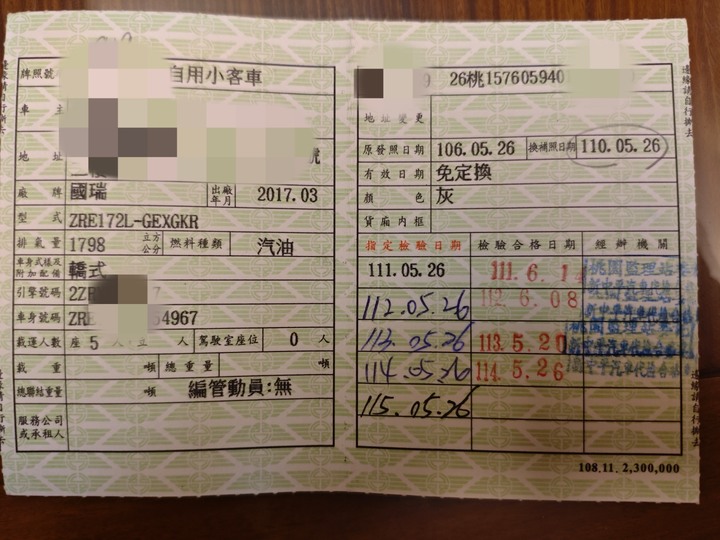 牌照號 自用小客車
車主
地址 號
廠牌 國瑞 出廠年月 2017.03
型式 ZRE172L-GEXGKR
排氣量 1798 立方公分 燃料種類 汽油
車身式樣及附加配備 轎式
引擎號碼 2Z 7
車身號碼 ZRE 54967
載運人數 座 5 人 立 人 駕駛室座位 0 人
載重 噸 總重量 噸
總聯結重量 噸 編管動員:無
服務公司或承租人
26桃157605940
地址變更
原發照日期 106.05.26 換補照日期 110.05.26
有效日期 免定換
顏色 灰
貨廂內框
指定檢驗日期 檢驗合格日期 經辦機關
111.05.26 111.6.1 桃園監理站
112.05.26 112.6.08
113.05.26 113.5.20 桃園監理站
114.05.26 114.5.26
115.05.26
108.11. 2,300,000
邊緣請自行撕去